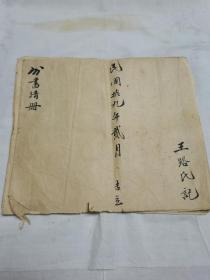 王路氏記
民国拾九年貳月 吉立
分書清冊